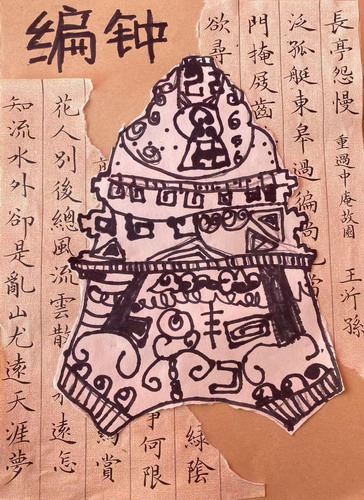 编钟
長亭怨慢 重過中庵故園 王沂孫
泛孤艇東皋過徧尚 當
門掩屐齒
欲尋
綠陰
何限
賞
花人別後總風流雲散 水遠怎
知流水外卻是亂山尤遠天涯夢